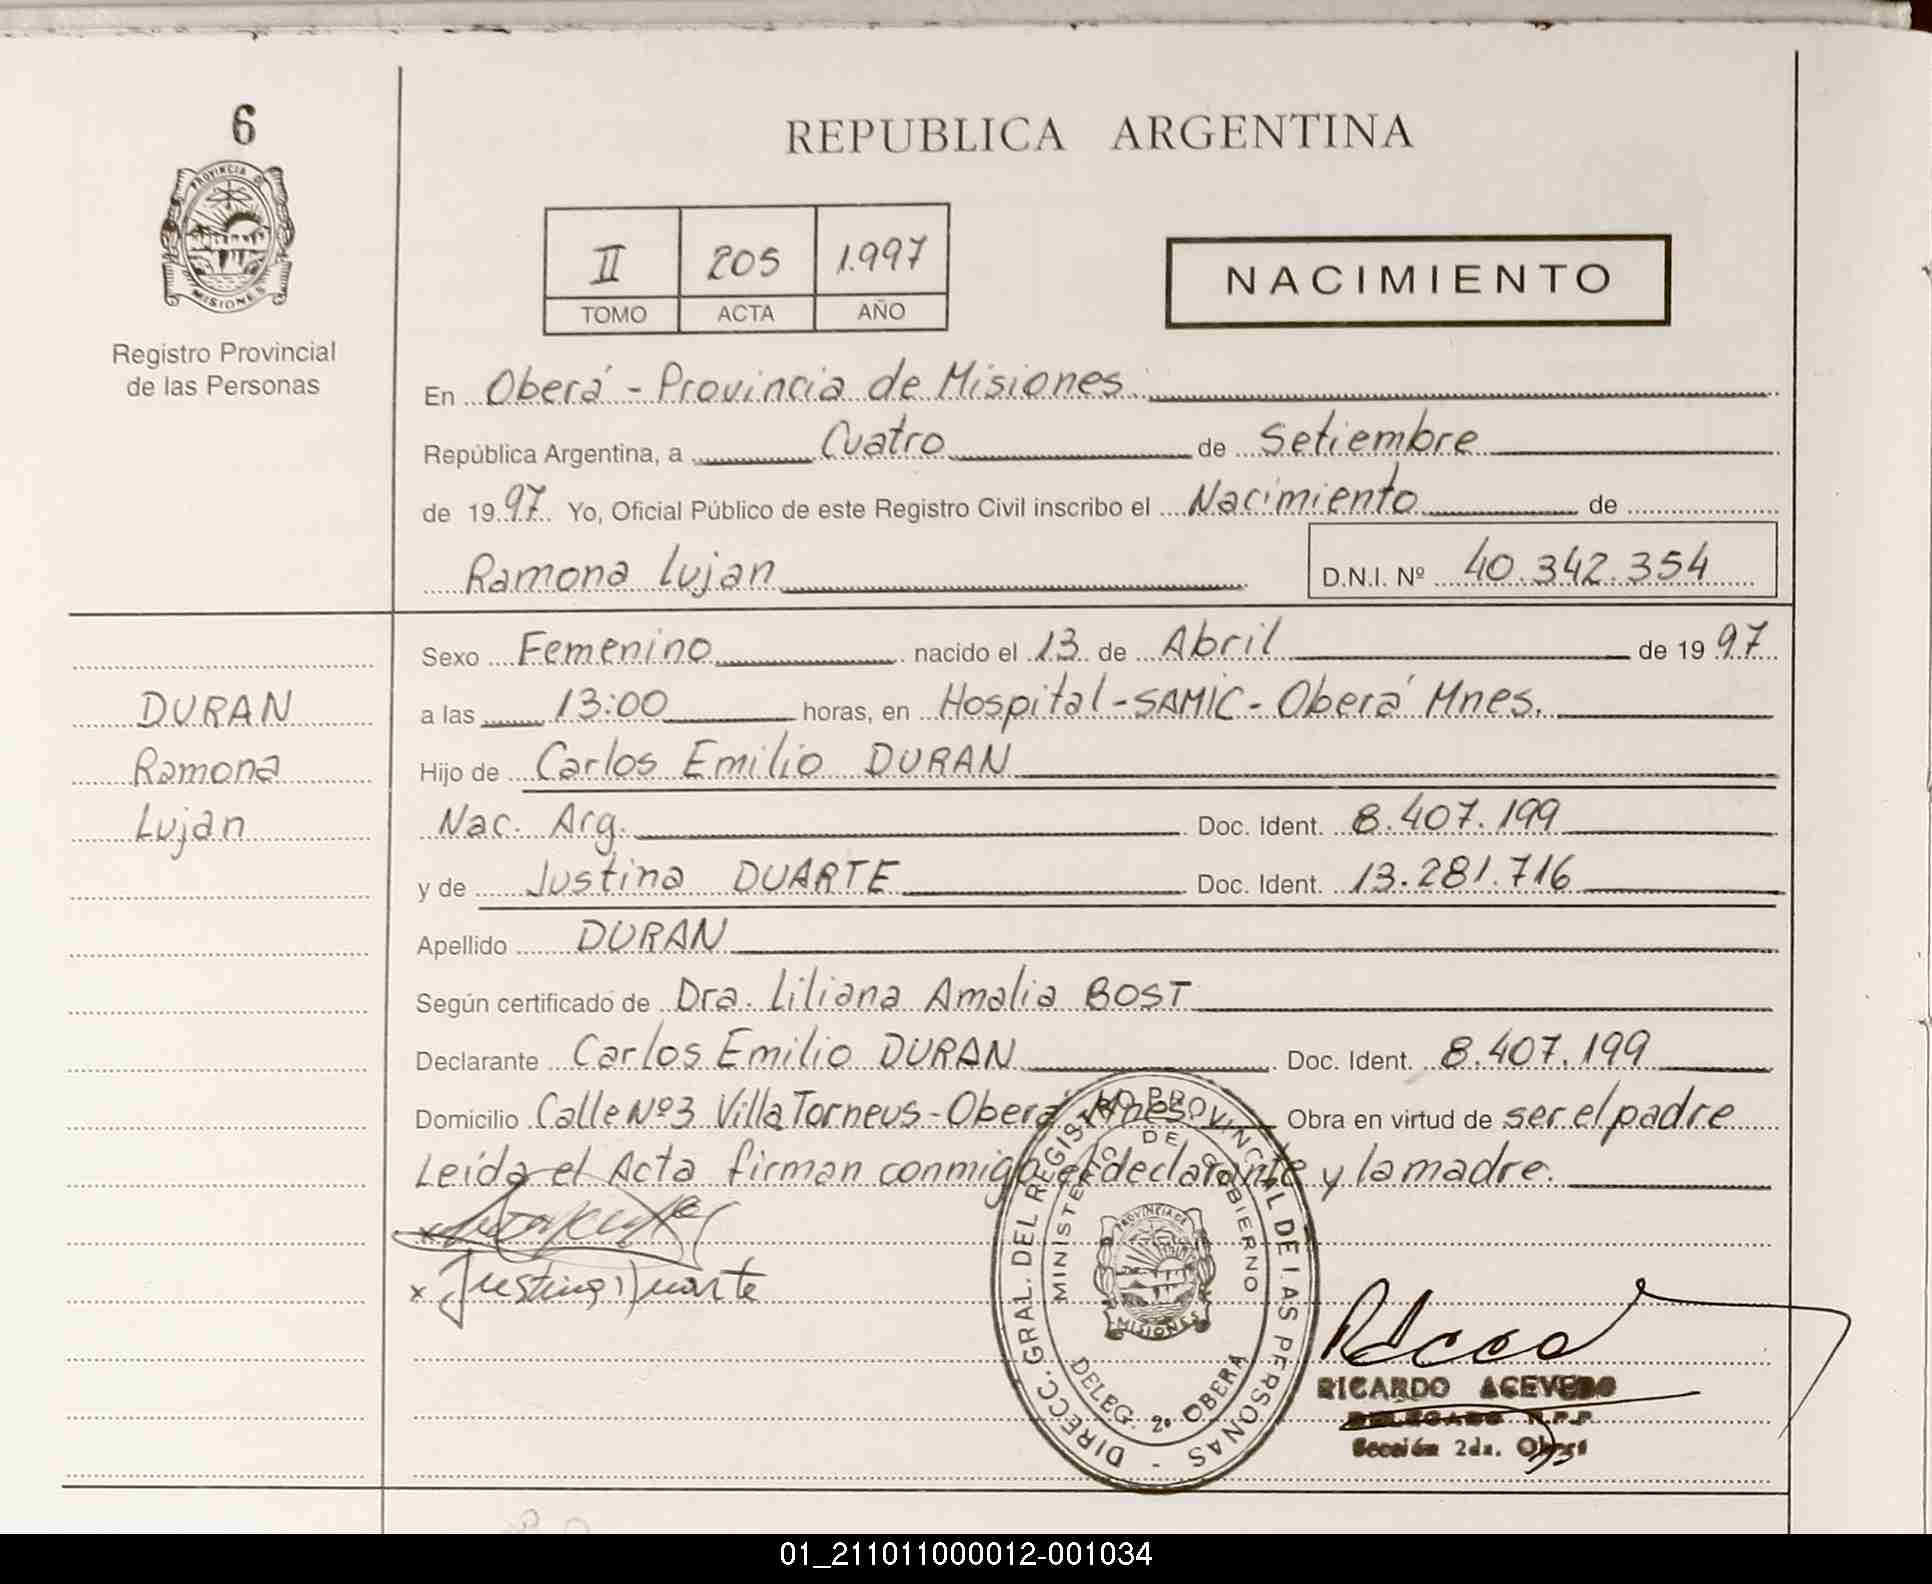 6
PROVINCIA D
MISIONES
Registro Provincial
de las Personas
REPUBLICA ARGENTINA
II 205 1.997
TOMO ACTA AÑO
NACIMIENTO
En Oberá - Provincia de Misiones
República Argentina, a Cuatro de Setiembre
de 1997 Yo, Oficial Público de este Registro Civil inscribo el Nacimiento de
Ramona Lujan D.N.I. Nº 40.342.354
DURAN
Ramona
Lujan
Sexo Femenino nacido el 13 de Abril de 1997
a las 13:00 horas, en Hospital-SAMIC-Oberá Mnes.
Hijo de Carlos Emilio DURAN
Nac. Arg. Doc. Ident. 8.407.199
y de Justina DUARTE Doc. Ident. 13.281.716
Apellido DURAN
Según certificado de Dra. Liliana Amalia BOST
Declarante Carlos Emilio DURAN Doc. Ident. 8.407.199
Domicilio Calle Nº3 Villa Torneus-Oberá Mnes Obra en virtud de ser el padre
Leída el Acta firman conmigo el declarante y la madre.
x
x Justina Duarte
DIRECC. GRAL. DEL REGISTRO PROVINCIAL DE LAS PERSONAS -
MINISTERIO DE GOBIERNO
PROVINCIA DE
MISIONES
DELEG. 2ª OBERA
RICARDO ACEVEDO
DELEGADO R.P.P
Sección 2da. Oberá
01_211011000012-001034